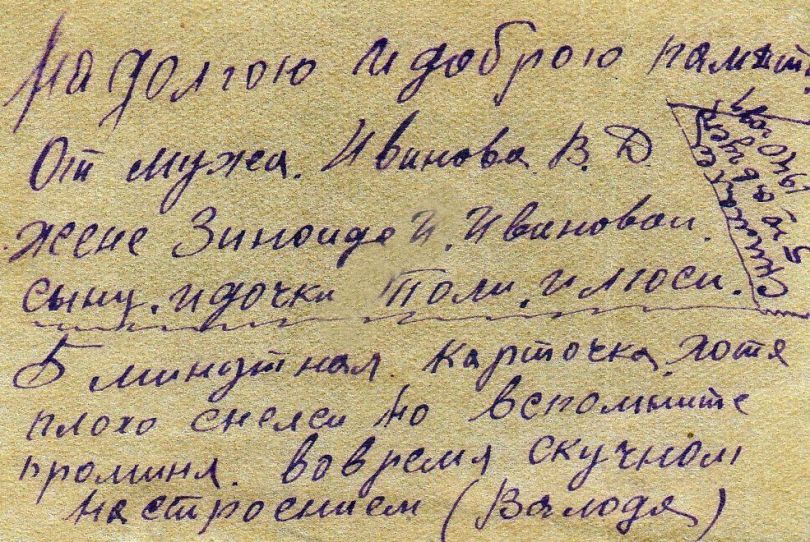 На долгою и доброю памят.
От мужа. Иванова В. Д.
жене Зиноиде И. Ивановой.
сыну. и дочки Толи. и Люси.
5 минутная карточка. хотя
плохо снелси но вспомните
проминя. вовремя скучном
настроением (Валодя)
Снимался
5го августа
1940 году